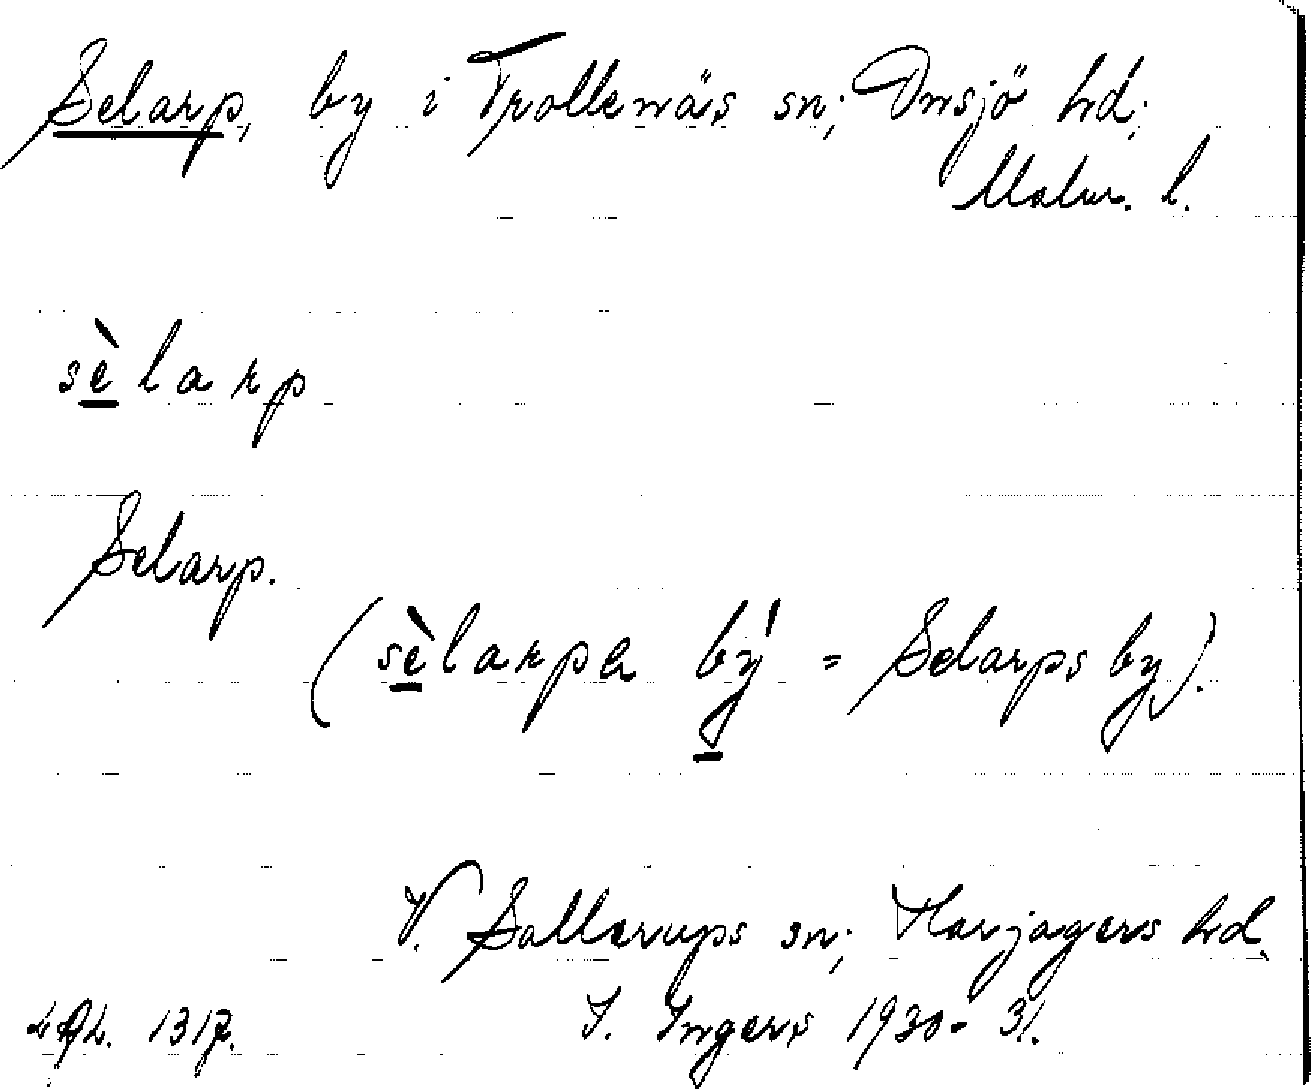 Selarp, by i Trollenäs sn; Onsjö hd;
Malm. l.
sèlarp
Selarp.
(sèlarpa bý = Selarps by).
V. Sallerups sn; Harjagers hd.
I. Ingers 1930-31.
1317.